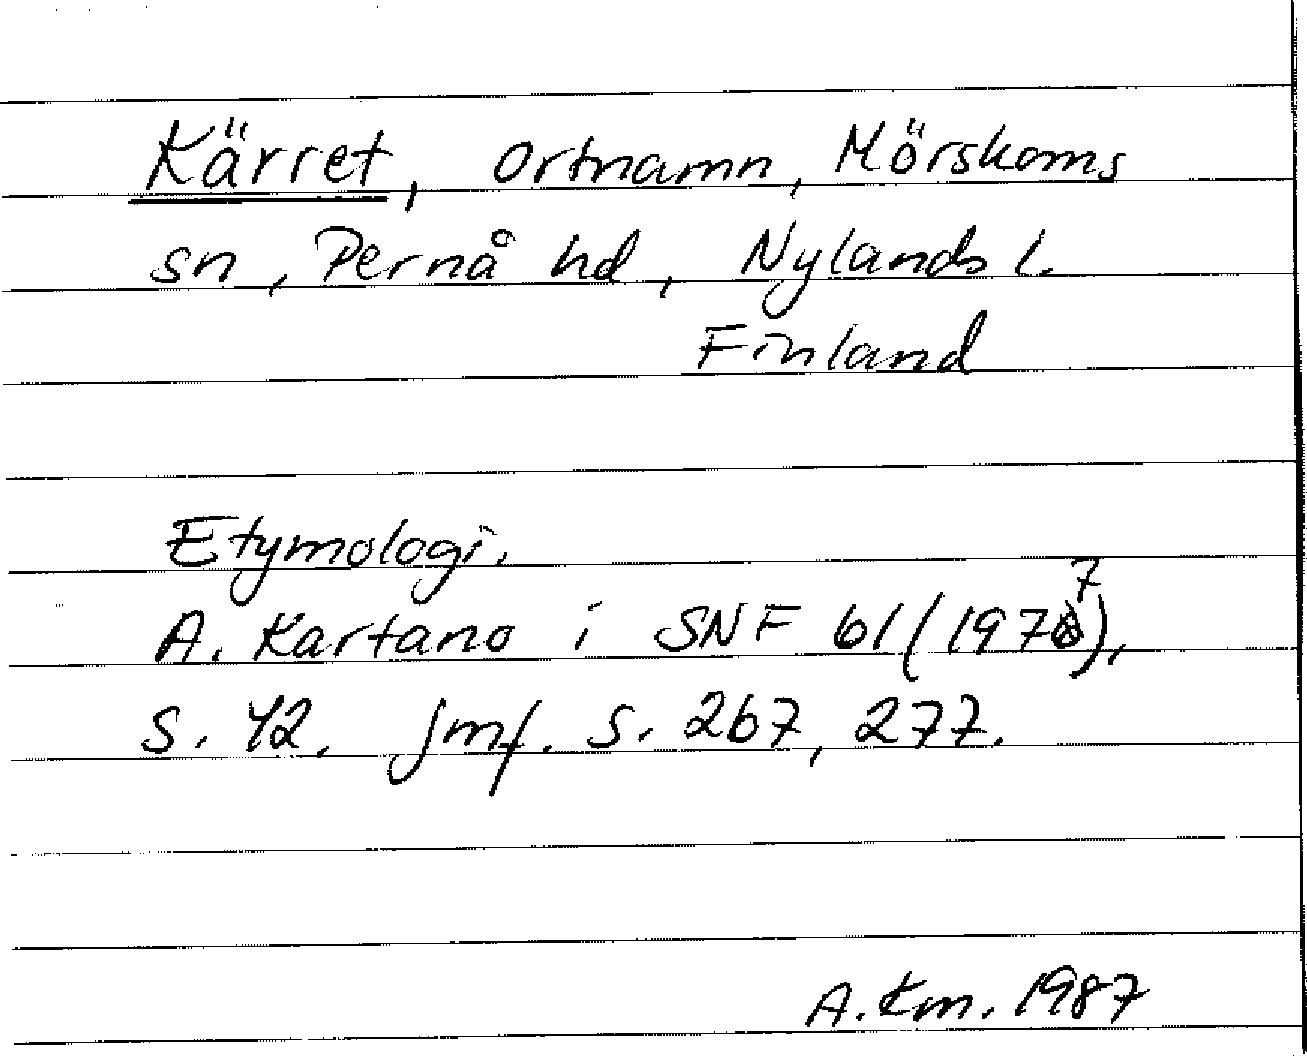 Kärret, ortnamn, Mörskoms
sn, Pernå hd, Nylands l.
Finland
Etymologi.
A. Kartano i SNF 61 (1977),
s. 42. Jmf. s. 267, 277.
A. Km. 1987